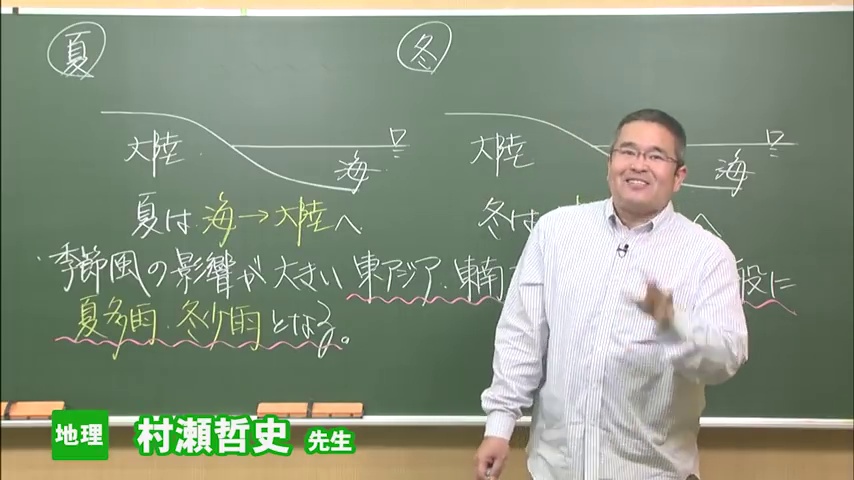 夏
冬
大陸
海
大陸
海
夏は 海→大陸へ
冬は
へ
・季節風の影響が大きい 東アジア・東南
般に
夏多雨・冬少雨となる。
地理 村瀬哲史 先生